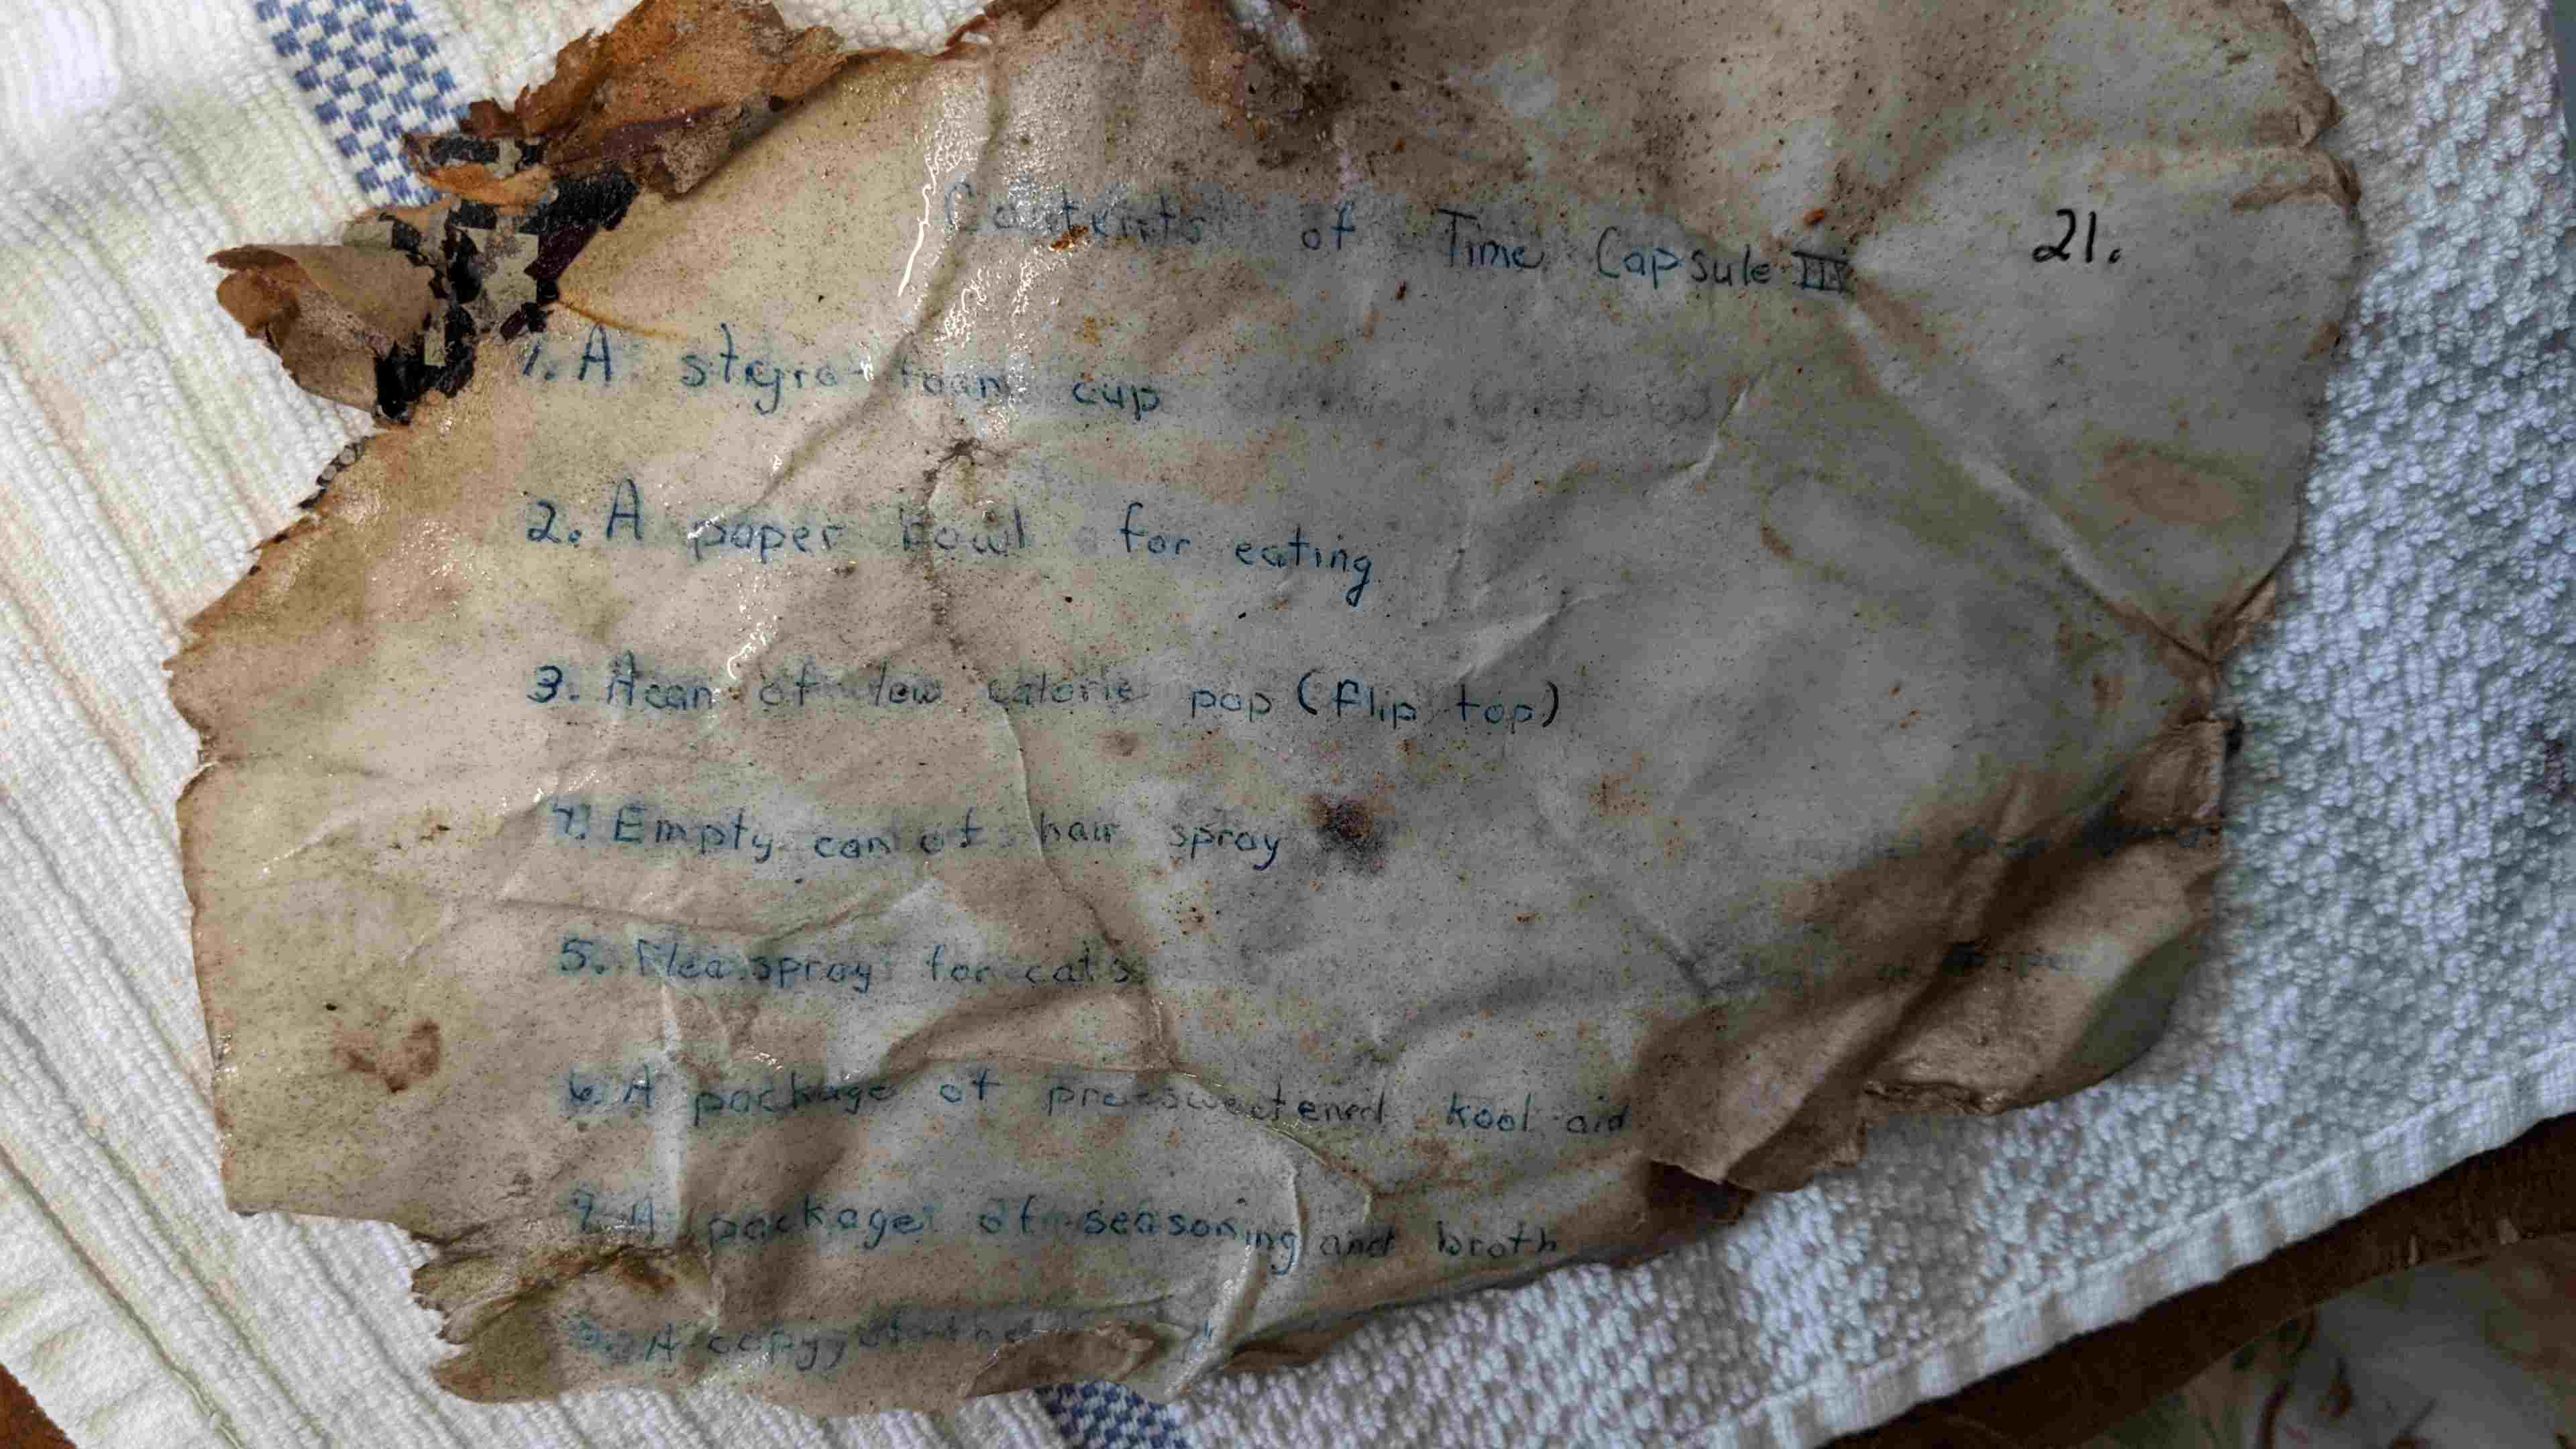 Contents of Time Capsule III
21.
1. A styro-foam cup
2. A paper bowl for eating
3. A can of low calorie pop (flip top)
4. Empty can of hair spray
5. Flea spray for cats
6. A package of pre-sweetened kool aid
7. A package of seasoning and broth
8. A copy of the